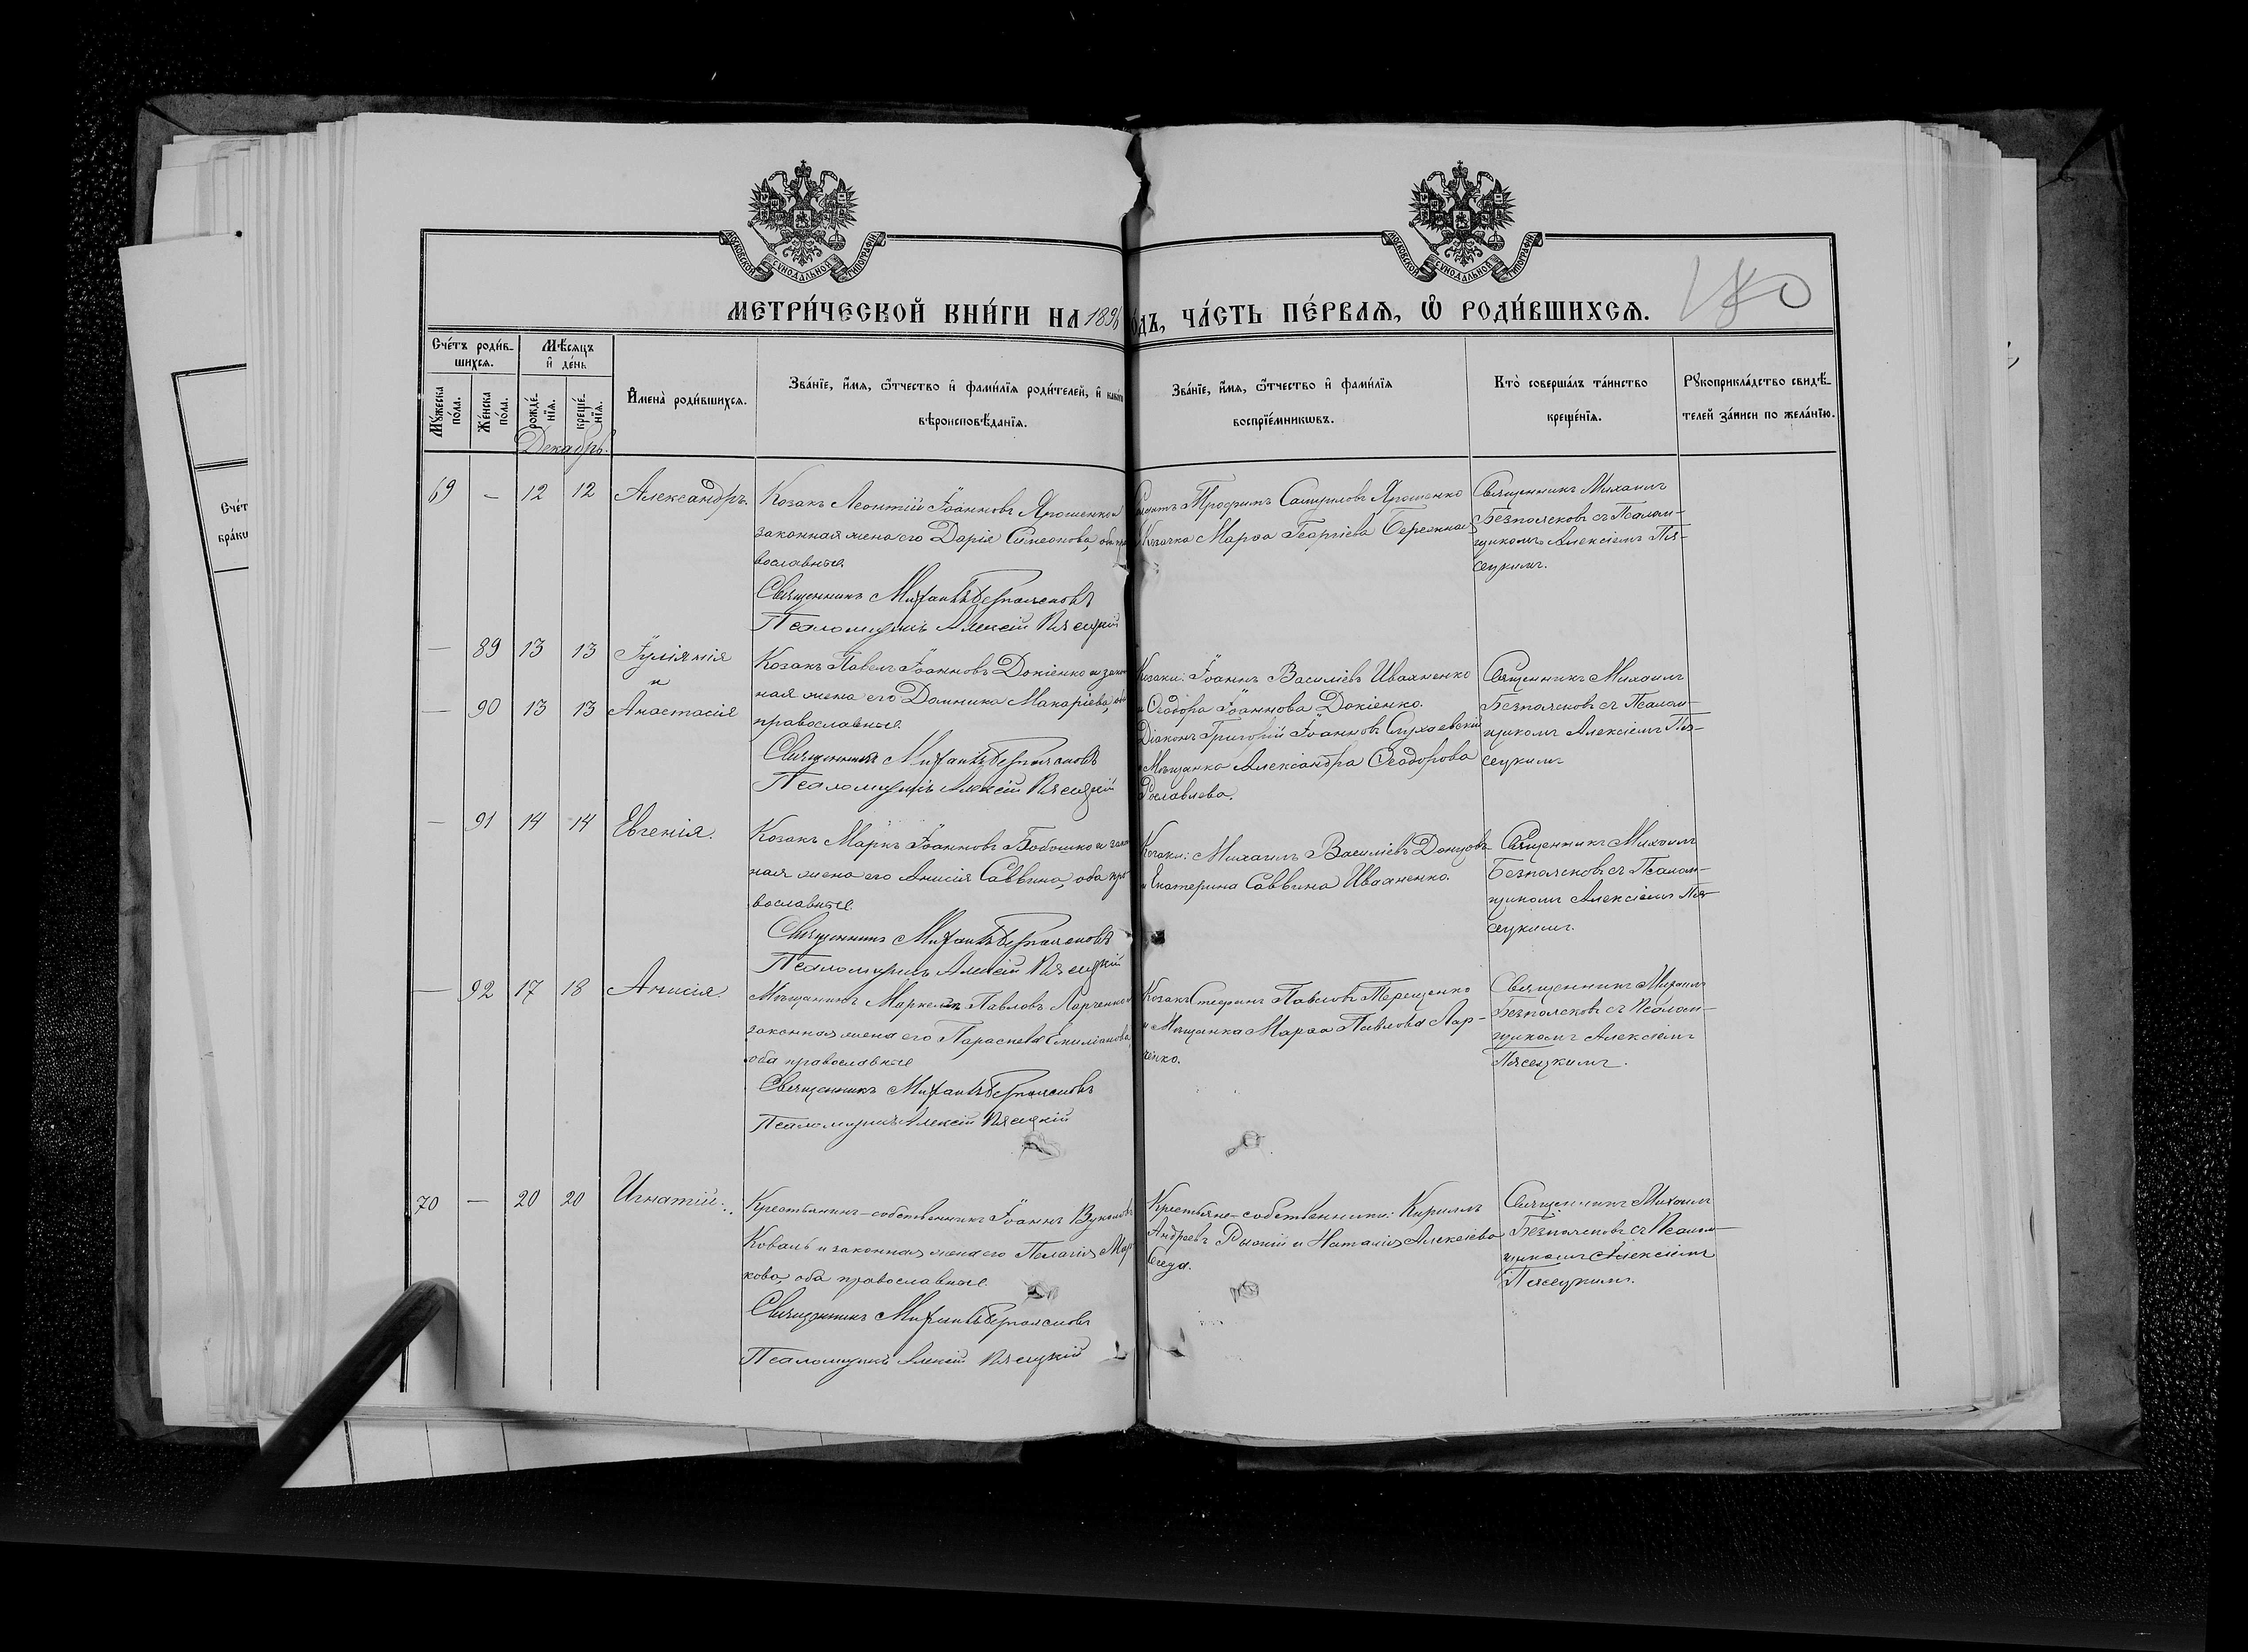 МОСКОВСКОЙ СѴНОДАЛЬНОЙ ТИПОГРАФІИ
МОСКОВСКОЙ СѴНОДАЛЬНОЙ ТИПОГРАФІИ
МЕТРИ́ЧЕСКОЙ КНИ́ГИ НА 1896
ДЪ, ЧА́СТЬ ПЕ́РВАЯ, Ѿ РОДИ́ВШИХСЯ.
Сче́тъ роди́в-
шихся.
Мѣ́сяцъ
и҆ де́нь
Мꙋ́жеска
по́ла.
Же́нска
по́ла.
рожде́-
нїя.
креще́-
нїя.
И҆мена̀ роди́вшихся.
Зва́нїе, и҆́мя, ѻ҆́тчество и҆ фами́лїя роди́телей, и҆ како́гѡ
вѣроисповѣ́данїя.
Зва́нїе, и҆́мя, ѻ҆́тчество и҆ фами́лїя
воспрїе́мникѡвъ.
Кто̀ соверша́лъ та́инство
креще́нїя.
Рꙋкоприкла́дство свидѣ́-
телей за́писи по жела́нїю.
Декабрь.
69 — 12 12 Александръ.
Козакъ Леонтій Іоанновъ Ярошенко и
законная жена его Дарія Симеонова, оба пра
вославные.
Священникъ Михаилъ Безпоясковъ
Псаломщикъ Алексій Пясецкій
Трофимъ Самуиловъ Ярошенко
Козачка Марѳа Георгіева Бережная
Священникъ Михаилъ
Безпоясковъ съ Псалом-
щикомъ Алексіемъ Пя-
сецкимъ.
— 89 13 13 Іуліянія
и
— 90 13 13 Анастасія
Козакъ Павелъ Іоанновъ Докіенко и закон
ная жена его Домника Макаріева, оба
православные.
Священникъ Михаилъ Безпоясковъ
Псаломщикъ Алексій Пясецкій
Козаки: Іоаннъ Василіевъ Иваненко
и Ѳеодора Іоаннова Докіенко.
Діаконъ Григорій Іоанновъ
и Мѣщанка Александра Ѳеодорова
Рославлева.
Священникъ Михаилъ
Безпоясковъ съ Псалом-
щикомъ Алексіемъ Пя-
сецкимъ.
— 91 14 14 Евгенія.
Козакъ Маркъ Іоанновъ Бобошко и закон
ная жена его Анисія Саввина, оба пра
вославные.
Священникъ Михаилъ Безпоясковъ
Псаломщикъ Алексій Пясецкій
Козаки: Михаилъ Василіевъ Донцовъ
и Екатерина Саввина Иваненко.
Священникъ Михаилъ
Безпоясковъ съ Псалом-
щикомъ Алексіемъ Пя-
сецкимъ.
— 92 17 18 Анисія.
Мѣщанинъ Маркелъ Павловъ Ларченко и
законная жена его Параскева Емиліанова,
оба православные
Священникъ Михаилъ Безпоясковъ
Псаломщикъ Алексій Пясецкій
Козакъ Стефанъ Павловъ Терещенко
и Мѣщанка Марѳа Павлова Лар-
ченко.
Священникъ Михаилъ
Безпоясковъ съ Псалом-
щикомъ Алексіемъ
Пясецкимъ.
70 — 20 20 Игнатій.
Крестьянинъ-собственникъ Іоаннъ
Коваль и законная жена его Пелагія Мар
кова, оба православные.
Священникъ Михаилъ Безпоясковъ
Псаломщикъ Алексій Пясецкій
Крестьяне-собственники: Кириллъ
Андреевъ Рыжій и Наталія Алексіева
Священникъ Михаилъ
Безпоясковъ съ Псалом-
щикомъ Алексіемъ
Пясецкимъ.
Сче́т
бра́ки